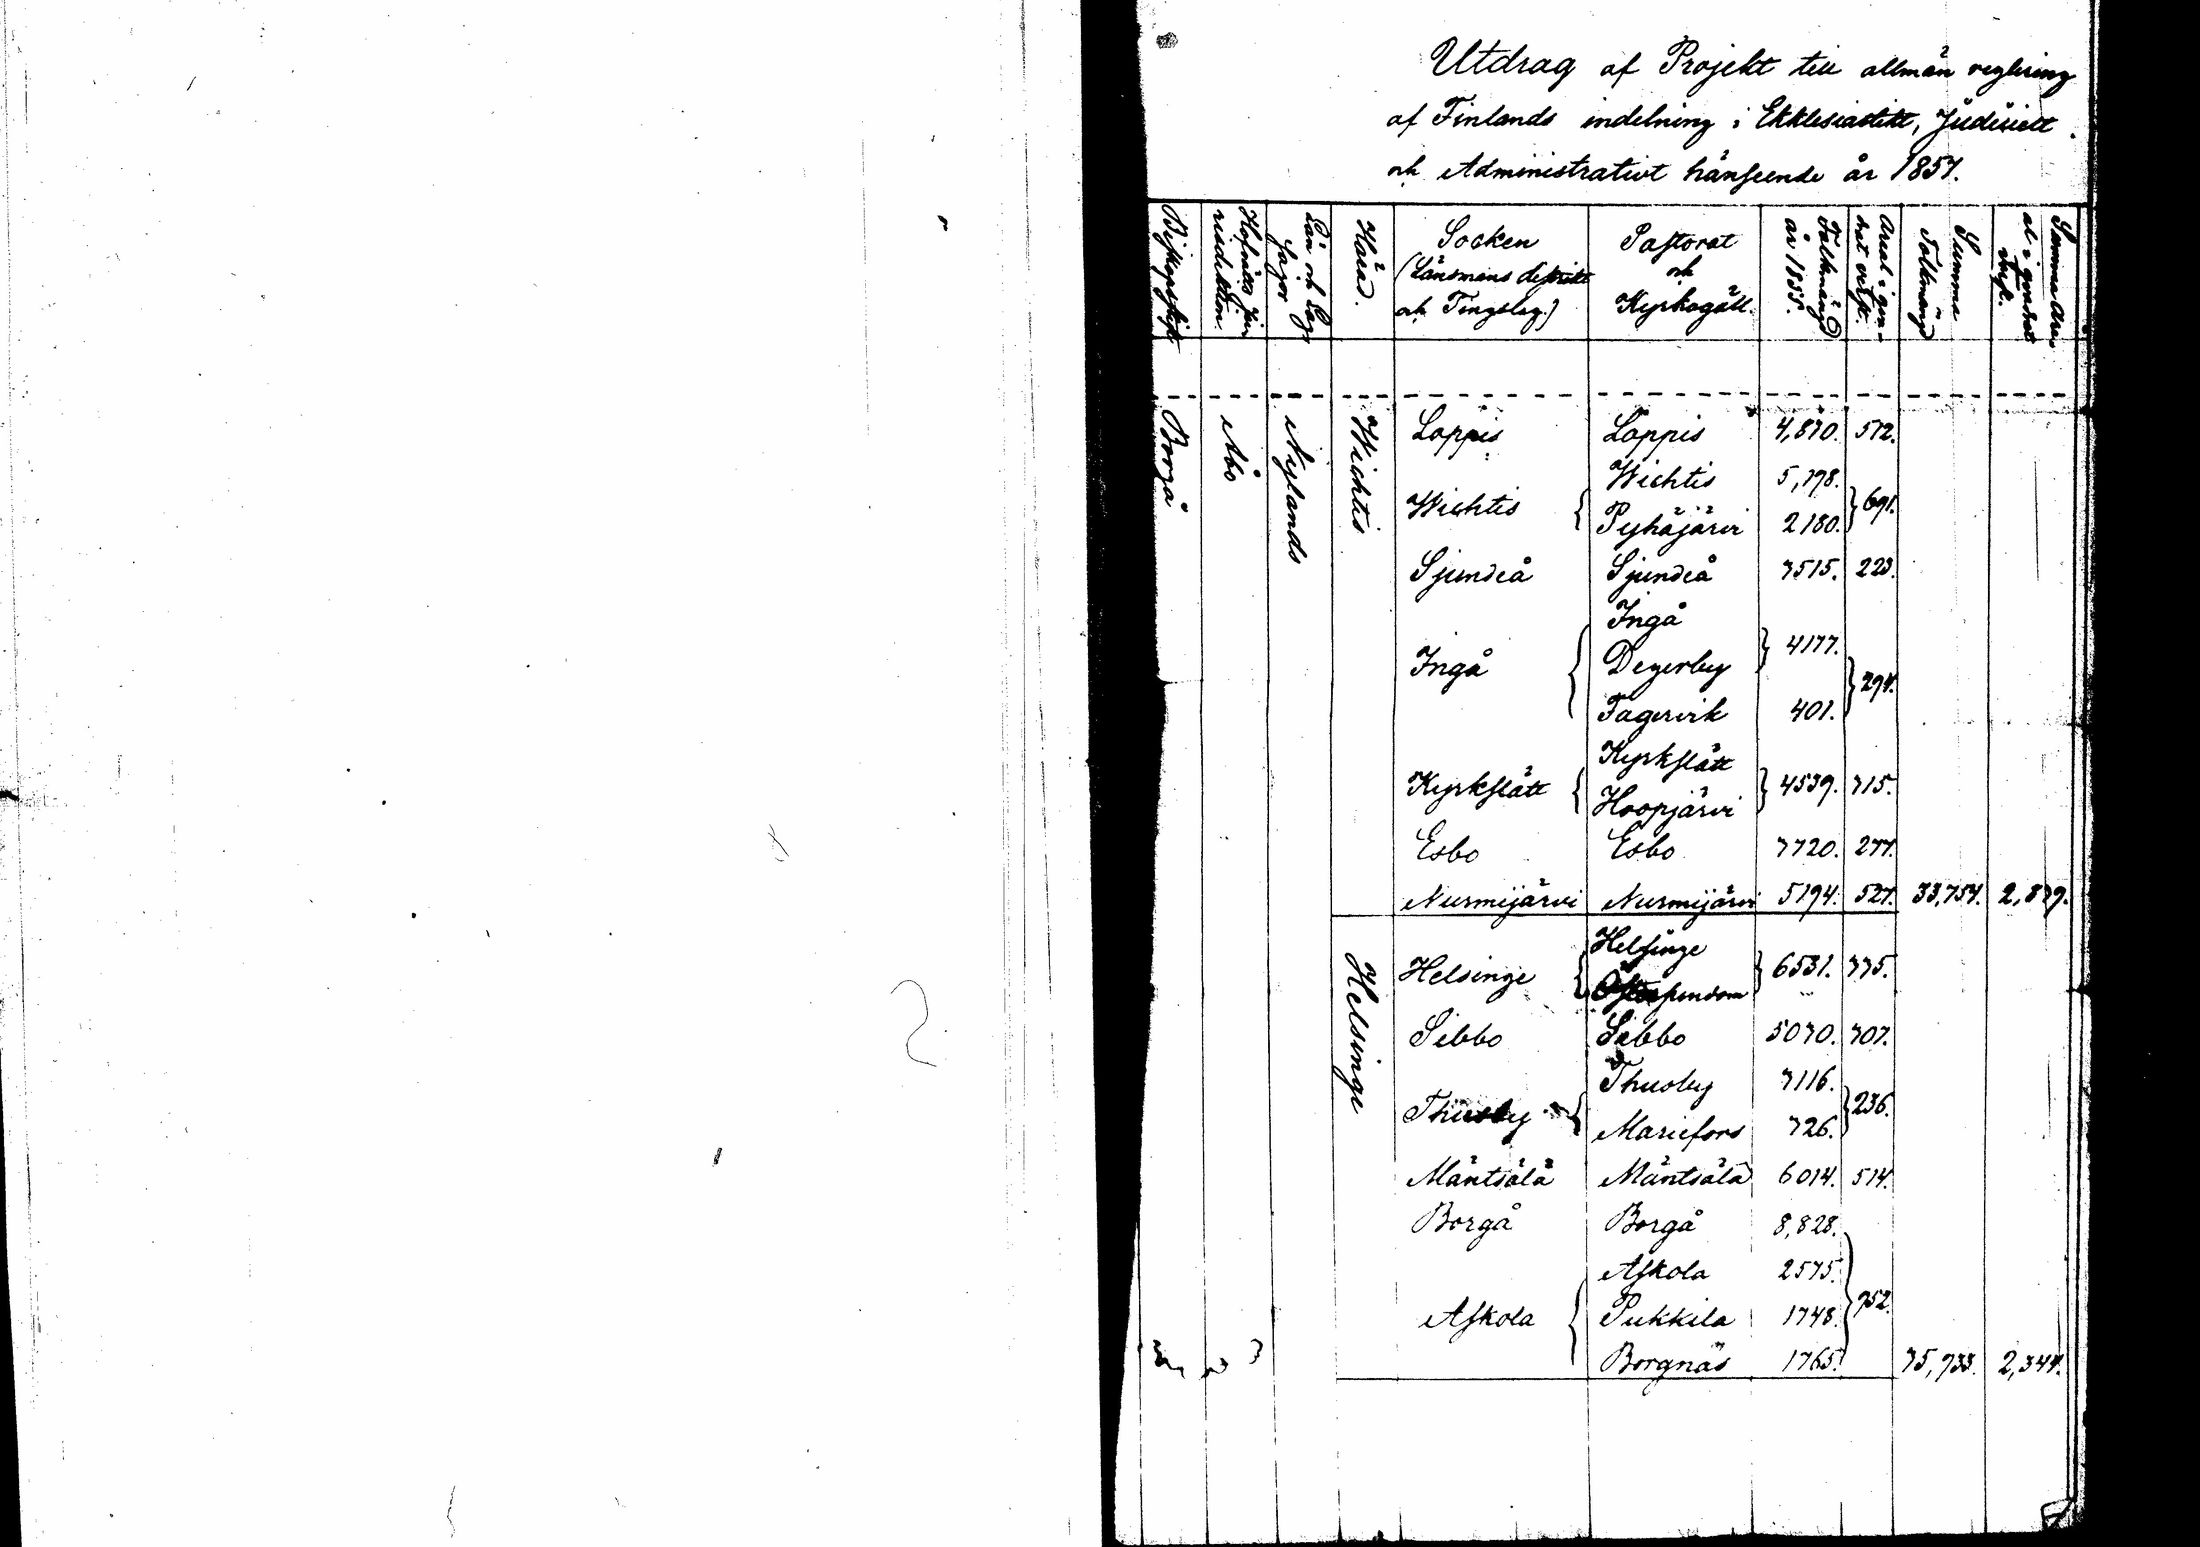 Utdrag af Projekt till allmän reglering
af Finlands indelning i Ekklesiastikt, Judisielt
och Administrativt hänseende år 1857.
Biskopsstift
Hofrätts Ju-
risdiktion
Län och Lag-
sagor
Härad.
Socken
(Länsmans distrikt
och Tingslag.)
Pastorat
och
Kyrkogäll.
Folkmängd
år 1855.
Areal i qua-
drat verst.
Summa
Folkmängd
Summa Are-
al i quadrat
verst.
Borgå Åbo Nylands Wichtis
Loppis Loppis 4,870. 572.
Wichtis 5,198.
Wichtis { } 691.
Pyhäjärvi 2180.
Sjundeå Sjundeå 3515. 223.
Ingå
Ingå { Degerby } 4177. } 294.
Fagervik 401.
Kyrkslätt
Kyrkslätt { } 4539. 315.
Hoopjärvi
Esbo Esbo 3720. 277.
Nurmijärvi Nurmijärvi 5194. 527. 33,754. 2,879.
Helsinge
Helsinge
Helsinge { } 6531. 335.
Sibbo Sibbo 5030. 307.
Thusby 3116.
Thusby { } 236.
Mariefors 326.
Mäntsälä Mäntsälä 6014. 514.
Borgå Borgå 8,828.
Askola 2575.
Askola { Pukkila 1748. } 952.
Borgnäs 1765. 35,933. 2,344.